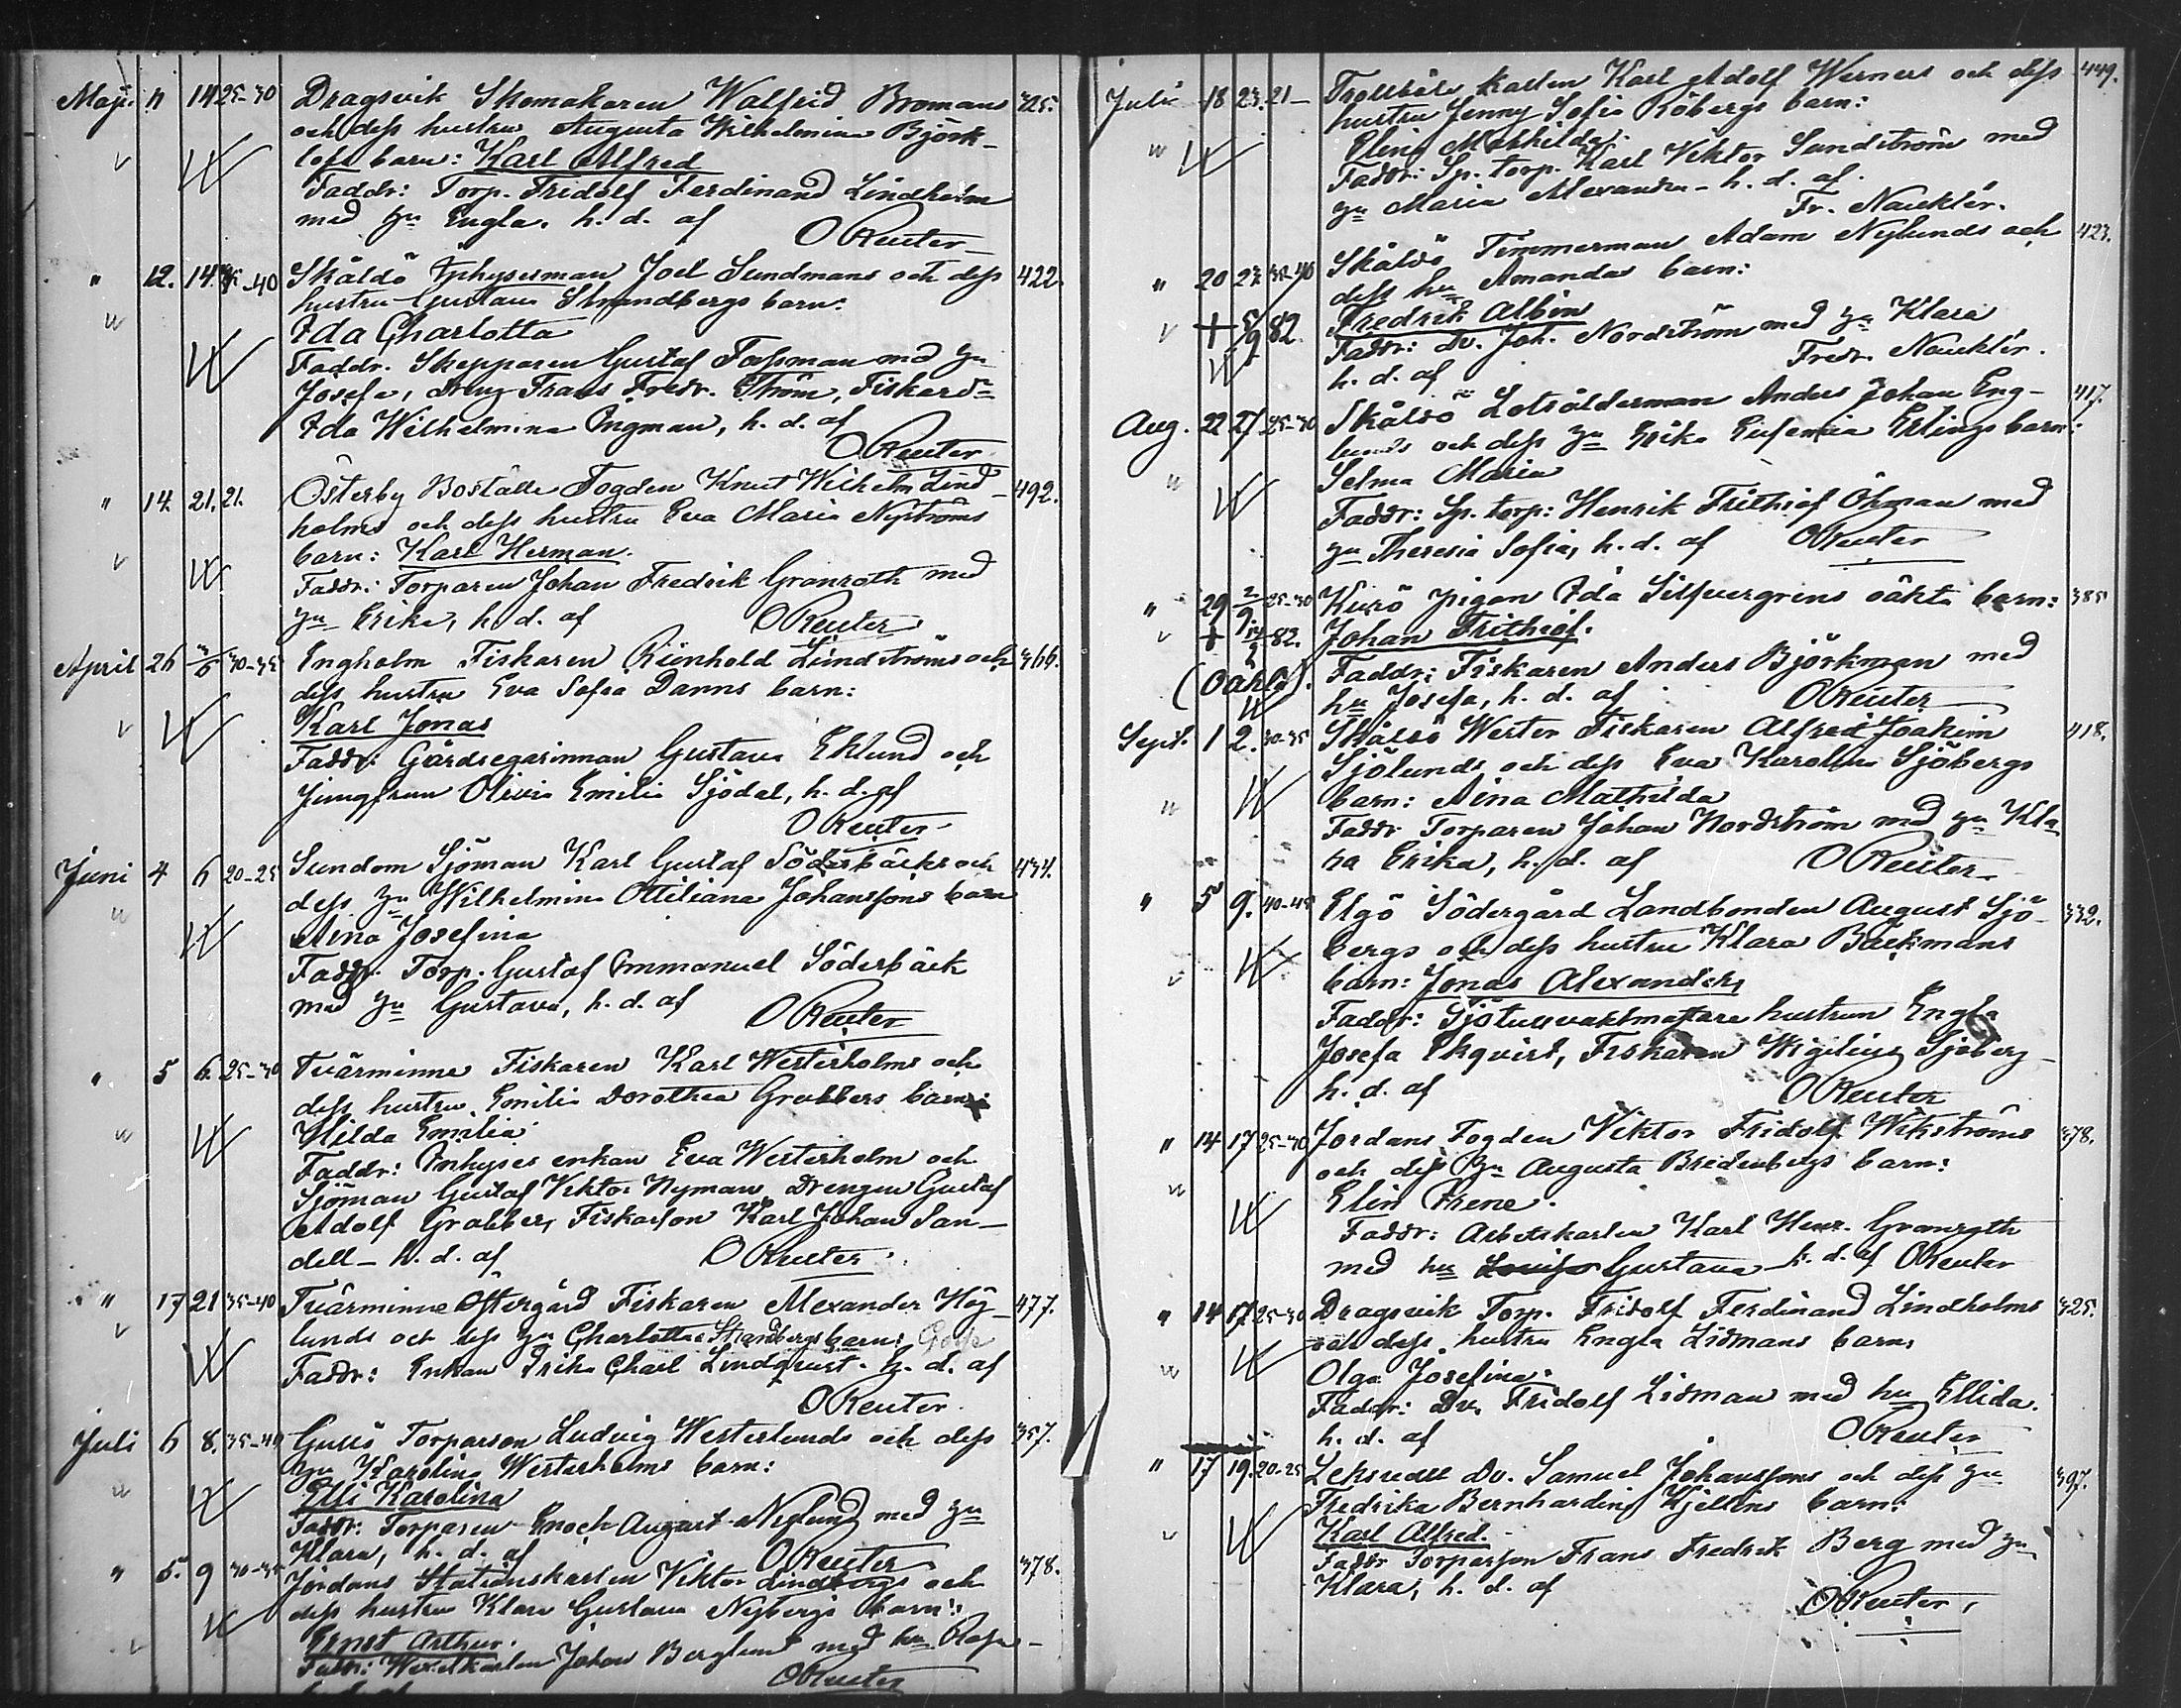 Maji 11 14 25-30 Dragsvik Skomakaren Walfrid Bromans 325.
och dess hustru Augusta Wilhelmina Björk-
lofs barn: Karl Alfred
Faddr: Torp. Fridolf Ferdinand Lindholm
med hu Engla. h. d. af
O Reuter
" 12. 14. 35-40 Skåldö Inhysesman Joel Sundmans och dess 422.
hustru Gustava Strandbergs barn:
Ida Charlotta
Faddr. Skepparen Gustaf Forsman med hu
Josefa, Dreng Frans Fredr. Ström, Fiskard:
Ida Wilhelmina Engman, h. d. af
O Reuter
" 14. 21. 21. Österby Boställe Fogden Knut Wilhelm Lind- 492.
holms och dess hustru Eva Maria Nyströms
barn: Karl Herman.
Faddr: Torparen Johan Fredrik Granroth med
hu Erika, h. d. af O Reuter
April 26 30-35 Engholm Fiskaren Reinhold Lundströms och 366.
dess hustru Eva Sofia Danns barn:
Karl Jonas
Faddr: Gårdsegarinnan Gustava Eklund och
jungfrun Olivia Emilia Sjödal, h. d. af
O Reuter
Juni 4 6 20-25 Sundom Sjöman Karl Gustaf Söderbäcks och 434.
dess hu Wilhelmina Ottiliana Johanssons barn
Aina Josefina
Faddr. Torp. Gustaf Emmanuel Söderbäck
med hu Gustava, h. d. af O Reuter
" 5 6. 25-30 Tvärminne Fiskaren Karl Westerholms och
dess hustru Emilia Dorothea Grabbers barn:
Hilda Emilia
Faddr: Inhyses enkan Eva Westerholm och
Sjöman Gustaf Viktor Nyman Drengen Gustaf
Adolf Grabber, Fiskarson Karl Johan San-
dell - h. d. af O Reuter
" 17 21 35-40 Tvärminne Östergård Fiskaren Alexander Hög- 477.
lunds och dess hu Charlotta Strandbergs barn:
Faddr: Enkan Erika Charl Lindqvist. h. d. af
O Reuter.
Juli 6 8. 35-40 Gullö Torparson Ludvig Westerlunds och dess 357.
hu Karolina Westerholms barn:
Elli Karolina
Faddr: Torparen Enoch August Nylund med hu
Klara, h. d. af O Reuter
" 5. 9 30-35 Jordans Stationskarlen Viktor Lindbergs och 378.
dess hustru Klara Gustava Nybergs barn:
Ernst Arthur.
Faddr: Johan Berglund med hu Rosa-
O Reuter
Juli 18 23. 21- Trollböle karlen Karl Adolf Werners och dess 449.
hustru Jenny Sofia Röbergs barn:
Elina Mathilda.
Faddr: Sp. torp. Karl Viktor Sundström med
hu Maria Alexandra - h. d. af.
Fr. Nauklér.
" 20 23. 35-40 Skåldö Timmerman Adam Nylunds och 423.
dess hu Amanda barn:
+ 5/9 82. Fredrik Albin
Faddr: dr. Joh. Nordström med hu Klara
h. d. af Fredr. Nauklér.
Aug. 22 27. 25-30 Skåldö Lotsålderman Anders Johan Eng- 417.
lunds och dess hu Erika Eufemia Erlings barn:
Selma Maria
Faddr: Sp. torp: Henrik Frithiof Öhman med
hu Theresia Sofia, h. d. af O Reuter
" 29 2/9 25-30 Kurö pigan Ida Silfvergrens oäkta barn: 385
+ 82. Johan Frithiof.
(Oäkta). Faddr: Fiskaren Anders Björkman med
hu Josefa, h. d. af O Reuter
Sept. 1 2. 30-35 Skåldö Wester Fiskaren Alfred Joakim 418.
Sjölunds och dess Eva Karolina Sjöbergs
barn: Aina Mathilda
Faddr Torparen Johan Nordström med hu Kla-
ra Erika, h. d. af O Reuter
" 5 9. 40-45 Elgö Södergård Landbonden August Sjö- 332.
bergs och dess hustru Klara Bäckmans
barn: Jonas Alexander,
Faddr: Sjötullvaktmästare hustrun Engla
Josefa Ekqvist, Fiskaren Wigilius Sjöberg
h. d. af O Reuter
" 14 17 25-30 Jordans Fogden Viktor Fridolf Wikströms 378.
och dess hu Augusta Bredenbergs barn:
Elin Irene.
Faddr: Arbetskarlen Karl Henr. Granroth
med hu Gustava h. d. af O Reuter
" 14 17. 25-30 Dragsvik Torp. Fridolf Ferdinand Lindholms 325.
och dess hustru Engla Lidmans barn:
Olga Josefina:
Faddr: Dr. Fridolf Lidman med hu Ellida.
h. d. af O Reuter
" 17 19. 20-25 Leksvall Dr. Samuel Johanssons och dess hu 397.
Fredrika Bernhardina Kjellins barn:
Karl Alfred.
Faddr Torparson Frans Fredrik Berg med hu
Klara, h. d. af
O Reuter,